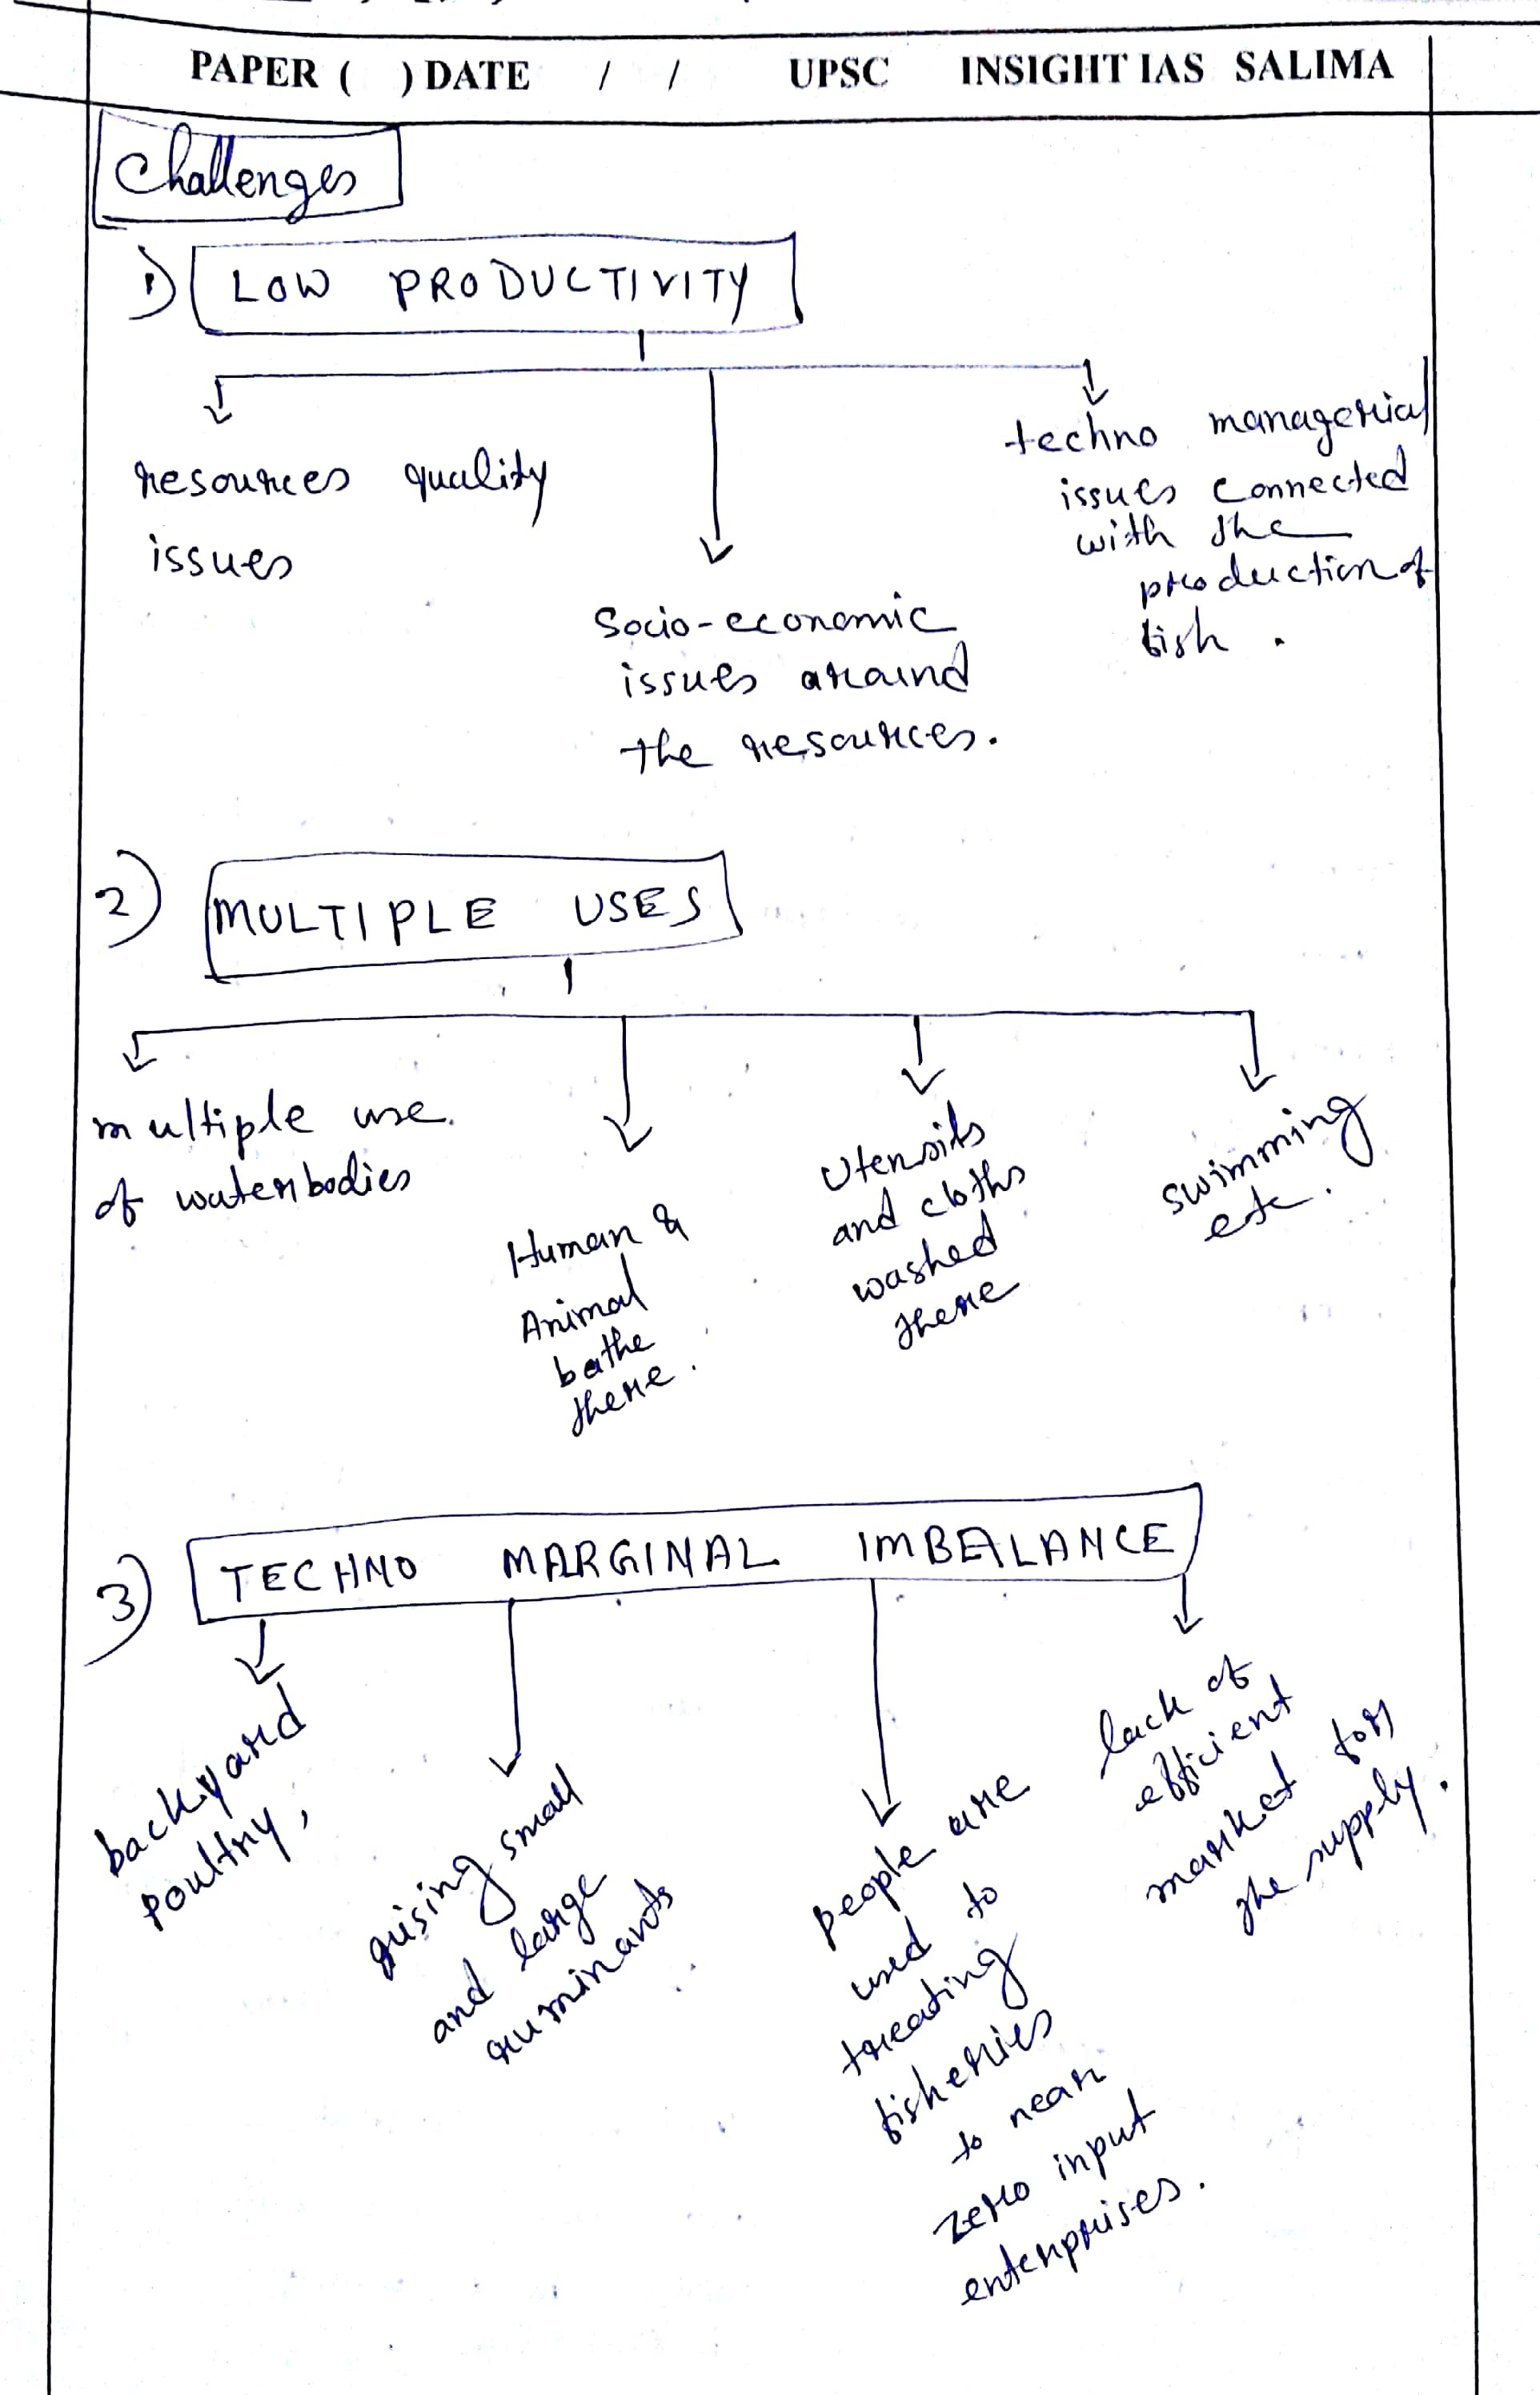 PAPER ( ) DATE / / UPSC INSIGHT IAS SALIMA
Challenges
1) LOW PRODUCTIVITY
resources quality
issues
Socio-economic
issues around
the resources.
techno managerial
issues connected
with the
production of
fish .
2) MULTIPLE USES
multiple use.
of waterbodies
Human &
Animal
bathe
there.
Utensils
and cloths
washed
there
swimming
etc.
3) TECHNO MARGINAL IMBALANCE
backyard
poultry,
rising small
and large
ruminants
people are
used to
treating
fisheries
to near
zero input
enterprises.
lack of
efficient
market for
the supply.